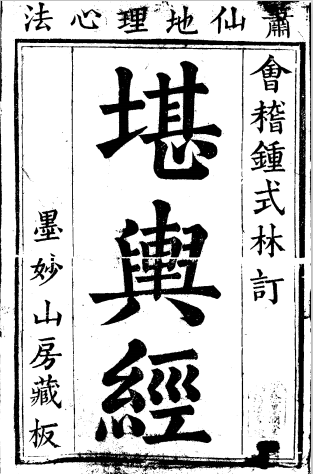 蕭仙地理心法
會稽鍾式林訂
堪輿經
墨妙山房藏板